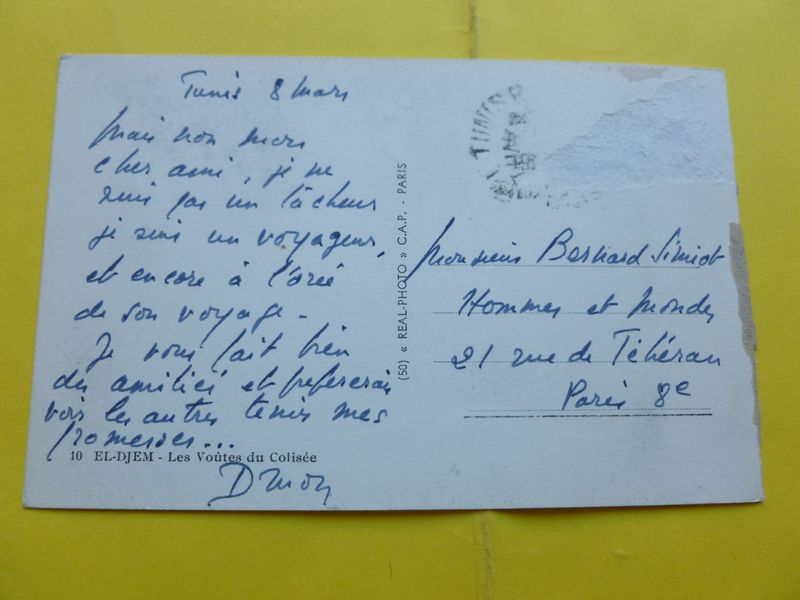 Tunis 8 Mars
Mais non mon
cher ami, je ne
suis pas un lâcheur
je suis un voyageur,
et encore à l'orée
de son voyage -
Je vous fait bien
des amitiés et prefererais
voir les autres tenir mes
promesses...
10 EL-DJEM - Les Voûtes du Colisée
(50) « REAL-PHOTO » C.A.P. - PARIS
TUNIS
Monsieur Bernard Simiot
Hommes et Mondes
21 rue de Téhéran
Paris 8e